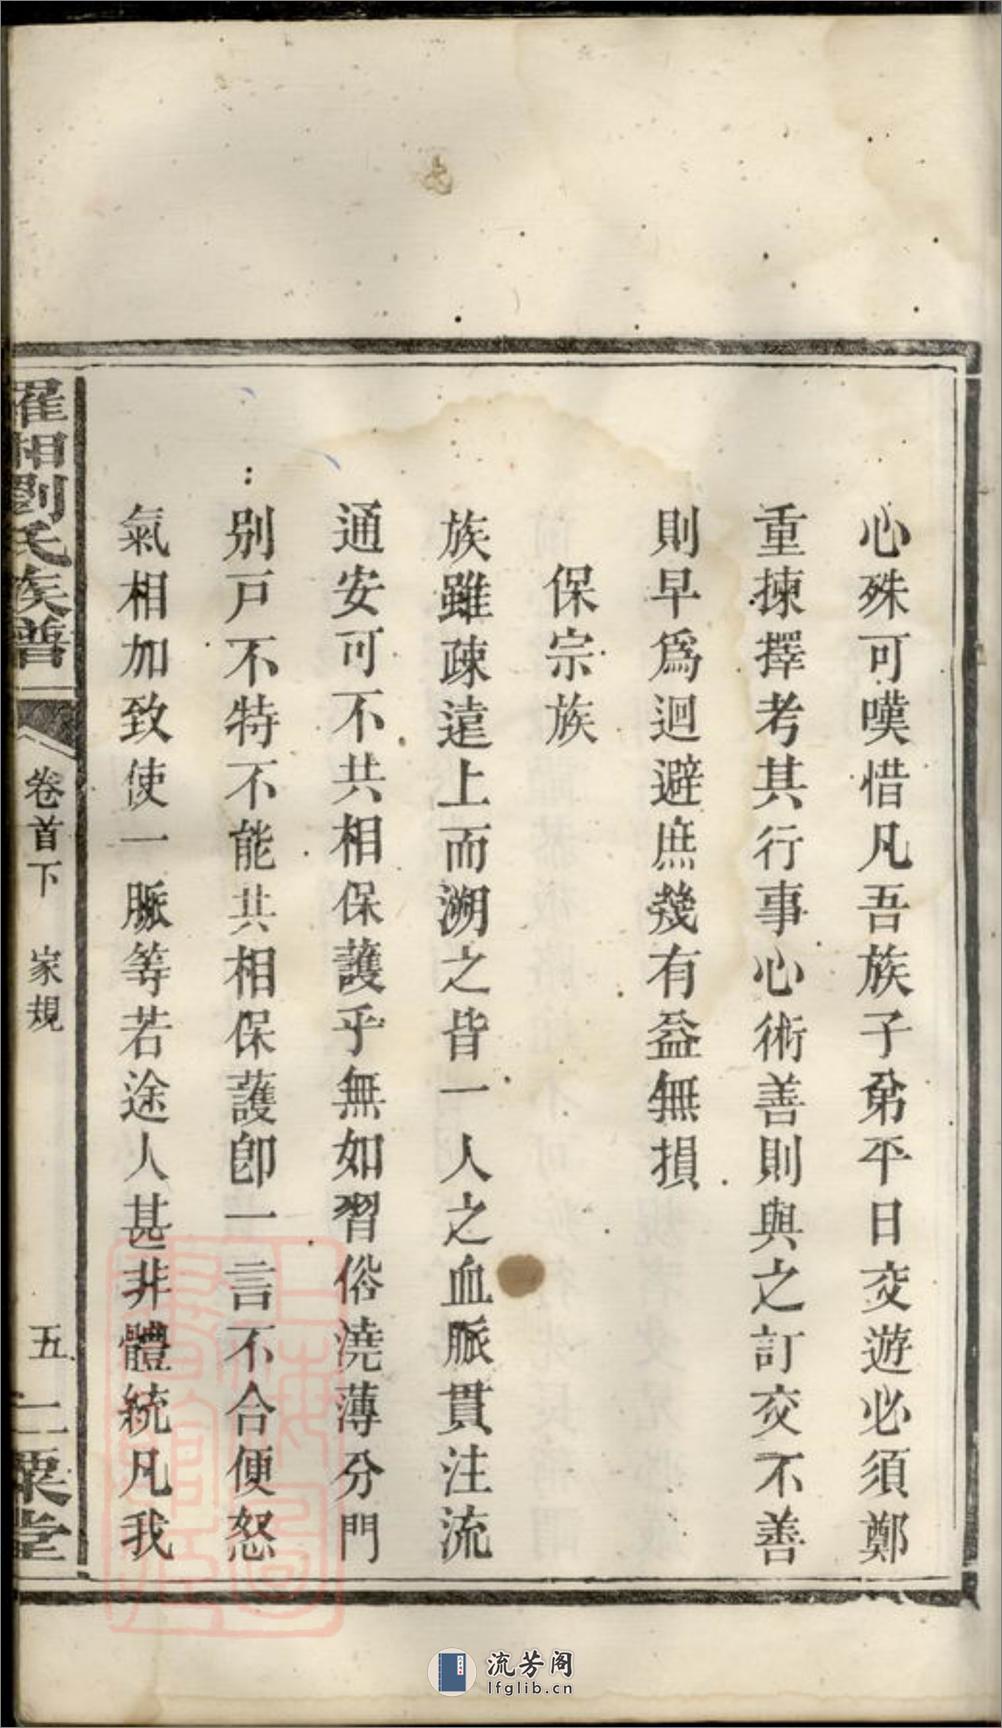 心殊可嘆惜凡吾族子弟平日交遊必須鄭
重揀擇考其行事心術善則與之訂交不善
則早爲迴避庶幾有益無損
保宗族
族雖疎遠上而溯之皆一人之血脈貫注流
通安可不共相保護乎無如習俗澆薄分門
別戸不特不能共相保護卽一言不合便怒
氣相加致使一脈等若途人甚非體統凡我
羅湘劉氏族譜
卷首下
家規
五
二栗堂
流芳阁
lfglib.cn